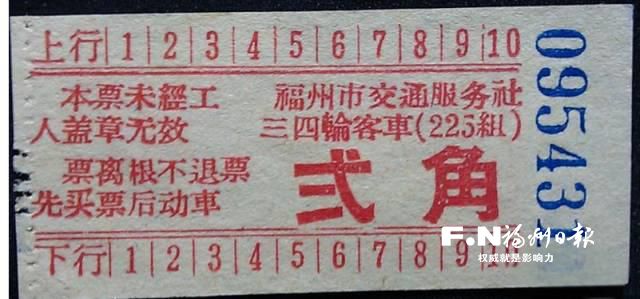 上行 1 2 3 4 5 6 7 8 9 10
本票未經工
人盖章无效
票离根不退票
先买票后动車
福州市交通服务社
三四輪客車(225組)
弍角
下行 1 2 3 4 5 6 7 8 9 10
095431
F.N福州日报
权威就是影响力